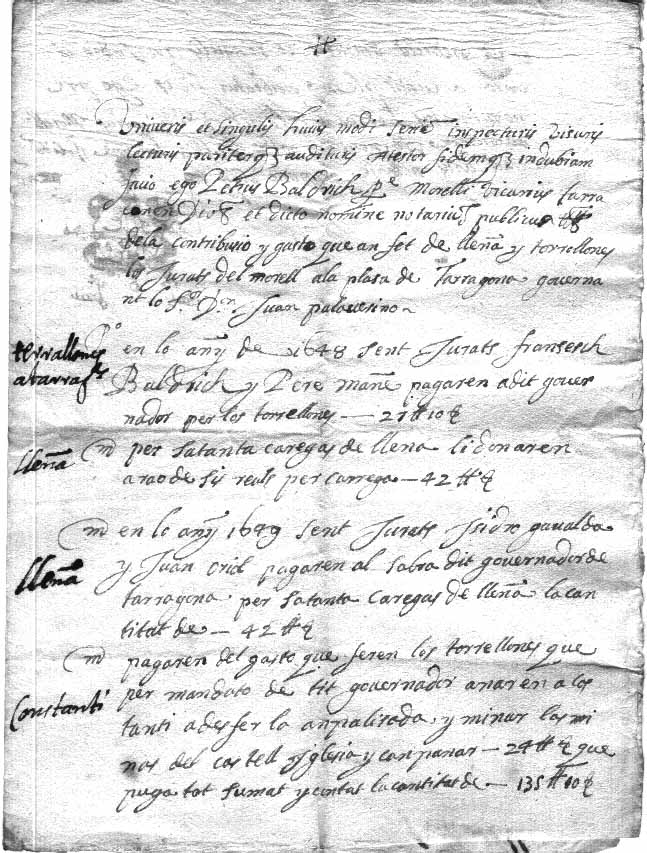 Univeris et singulis huius modi serie inspecturis visuris
lecturis pariterq3 audituris Atestor fidemq3 indubiam
facio ego Petrus Baldrich morelli vicarius tarra
conen et dicto nomine notarius publicus
dela contribusio y gasto que an fet de lleña y torrellones
los Jurats del morell ala plasa de Tarragona governa
nt lo Sr Dn Juan palavesino
terrallones
atarrags
Po en lo añy de 1648 sent Jurats fransesch
Baldrich y Pere mañe pagaren adit gover
nador per los torrellones — 21 ꝉꝉ 10 ꝭ
lleña
m per satanta caregas de llena li donaren
arao de sis reals per carrega — 42 ꝉꝉ ꝭ
lleña
m en lo añy 1649 sent Jurats Isidro gavalda
y Juan oriol pagaren al sobra dit governador de
tarragona per satanta caregas de lleña la can
titat de — 42 ꝉꝉ ꝭ
Constanti
m pagaren del gasto que feren los torrellones que
per mandato de dit governador anaren a Cos
tanti a desfer la anpalisada, y minar las mi
nas del castell yglesia y canpanar — 24 ꝉꝉ ꝭ que
puga tot sumat y contat la cantitat de — 135 ꝉꝉ 10 ꝭ